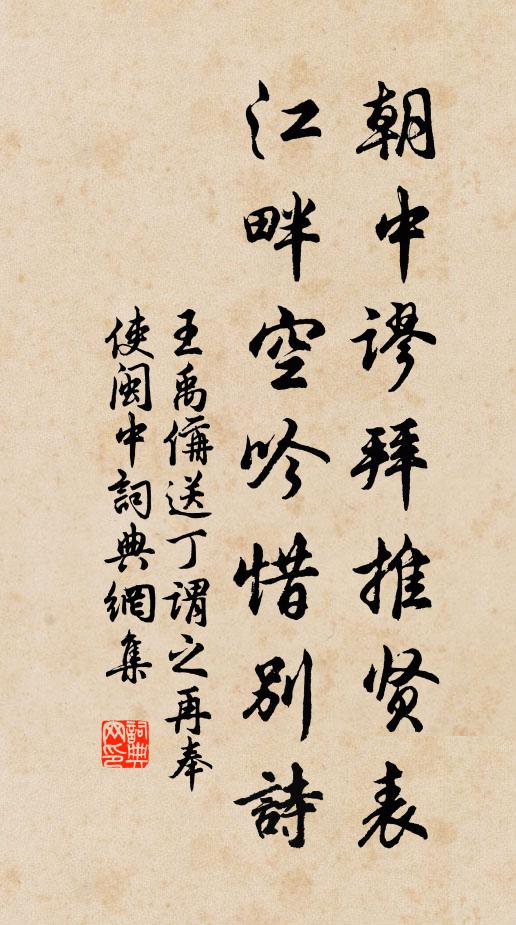 朝中谬拜推贤表
江畔空吟惜别詩
王禹偁送丁謂之再奉
使閩中詞典網集
詞典網印